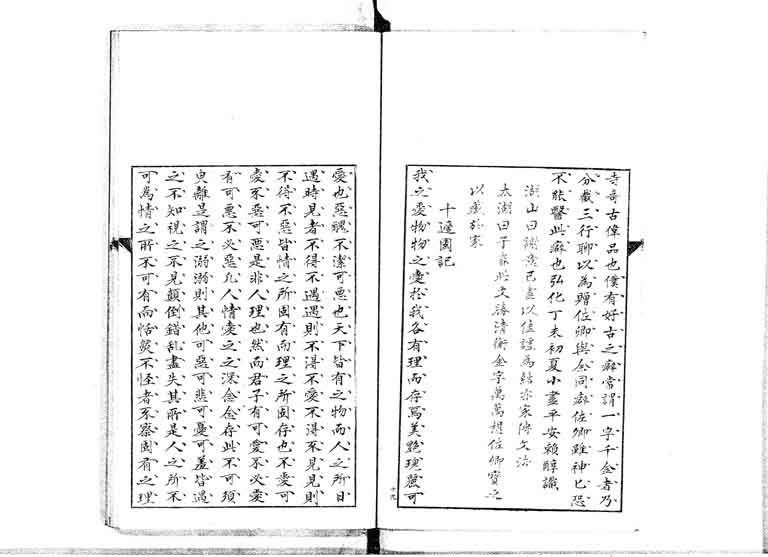 寺奇古偉品也僕有好古之癖常謂一字千金者乃
分截三行聊以為贈佐卿與余同癖佐卿雖神乜恐
不能醫此癖也弘化丁未初夏小盡平安賴醇識
湖山曰謝意已盡以佳謔為結亦家傳文法
太湖曰子春此文勝清衡金字萬萬想佐卿寶之
以藏於家
十邊園記
我之愛物物之愛於我各有理而存焉美艷瑰麗可
愛也惡醜不潔可惡也天下皆有之物而人之所日
遇時見者不得不遇遇則不得不愛不得不見見則
不得不惡皆情之所固有而理之所固存也不愛可
愛不惡可惡是非人理也然而君子有可愛不必愛
有可惡不必惡凡人情愛之之深念念存此不可須
臾離是謂之溺溺則其他可惡可悲可憂可羞皆遇
之不知視之不見顛倒錯乱盡失其所是人之所不
可為情之所不可有而恬然不怪者不察固有之理
十九